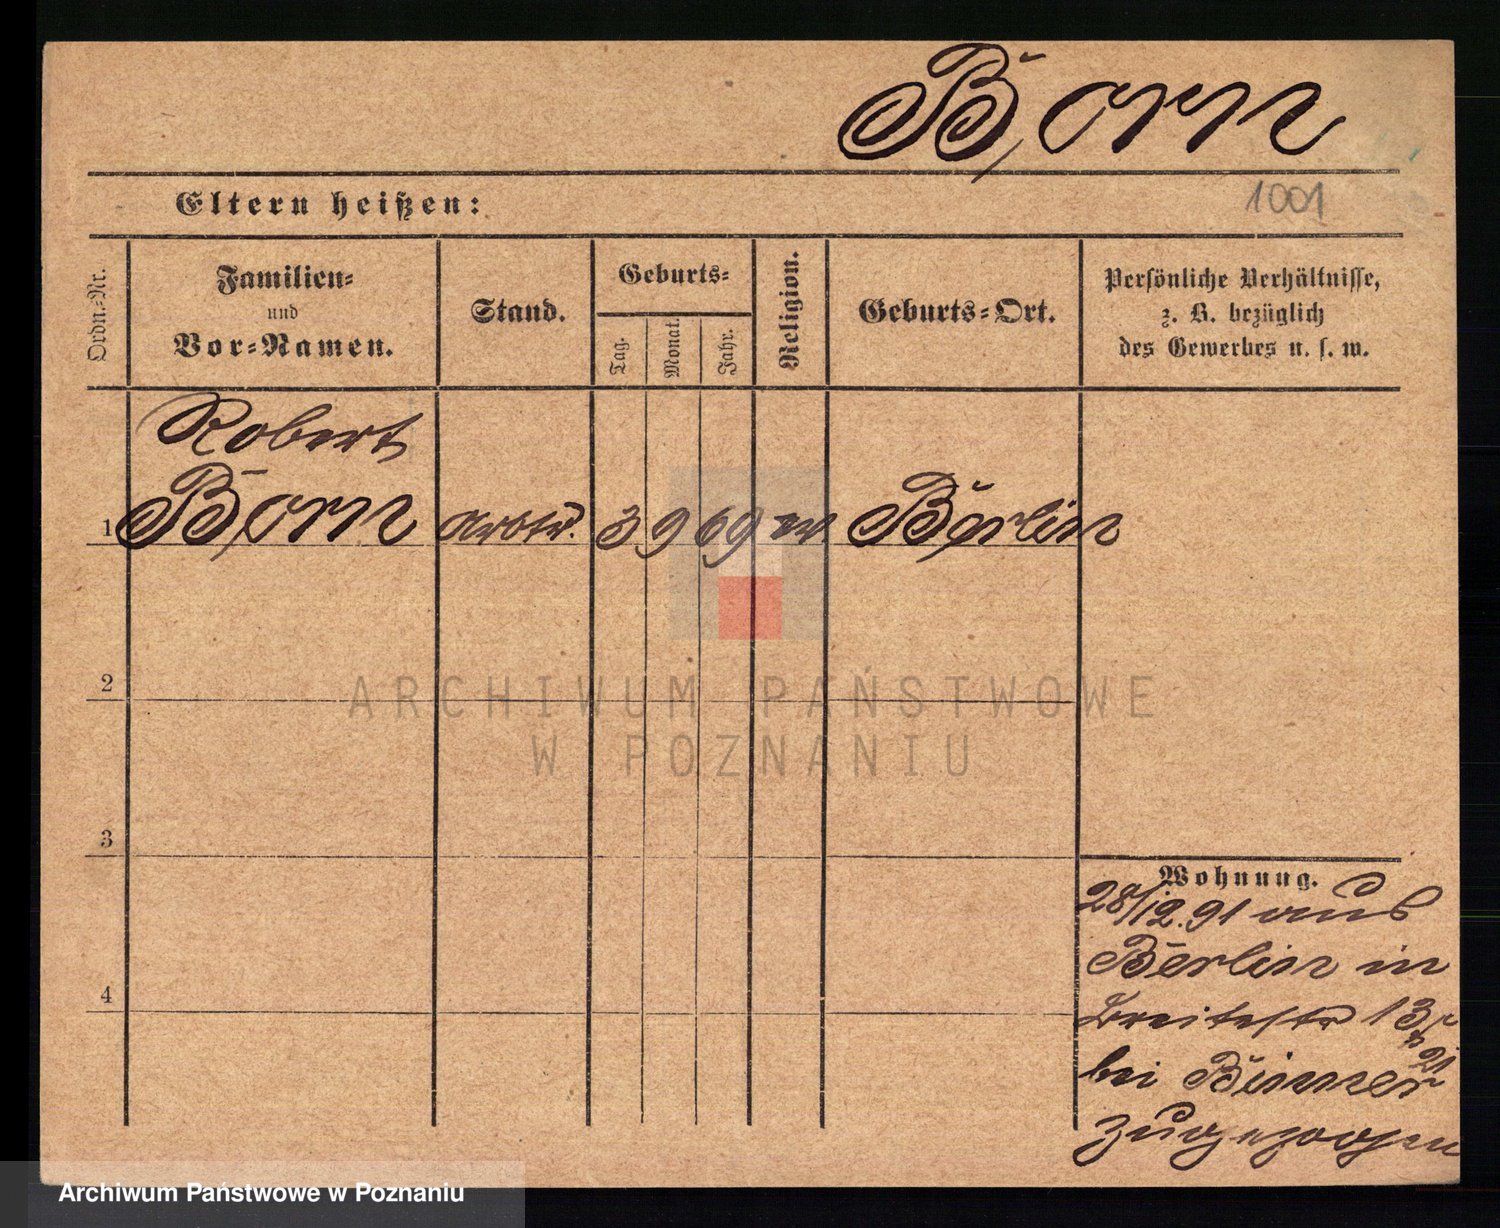 Born
1001
Eltern heißen:
Ordn.=Nr.
Familien=
und
Vor=Namen.
Stand.
Geburts=
Tag.
Monat.
Jahr.
Religion.
Geburts=Ort.
Persönliche Verhältnisse,
z. B. bezüglich
des Gewerbes u. s. w.
Robert
1 Born Arbtr. 3 9 69 ev Berlin
2
3
4
Wohnung.
28/12. 91 aus
Berlin in
Breitestr 13
bei
zugezogen
ARCHIWUM PAŃSTWOWE
W POZNANIU
Archiwum Państwowe w Poznaniu